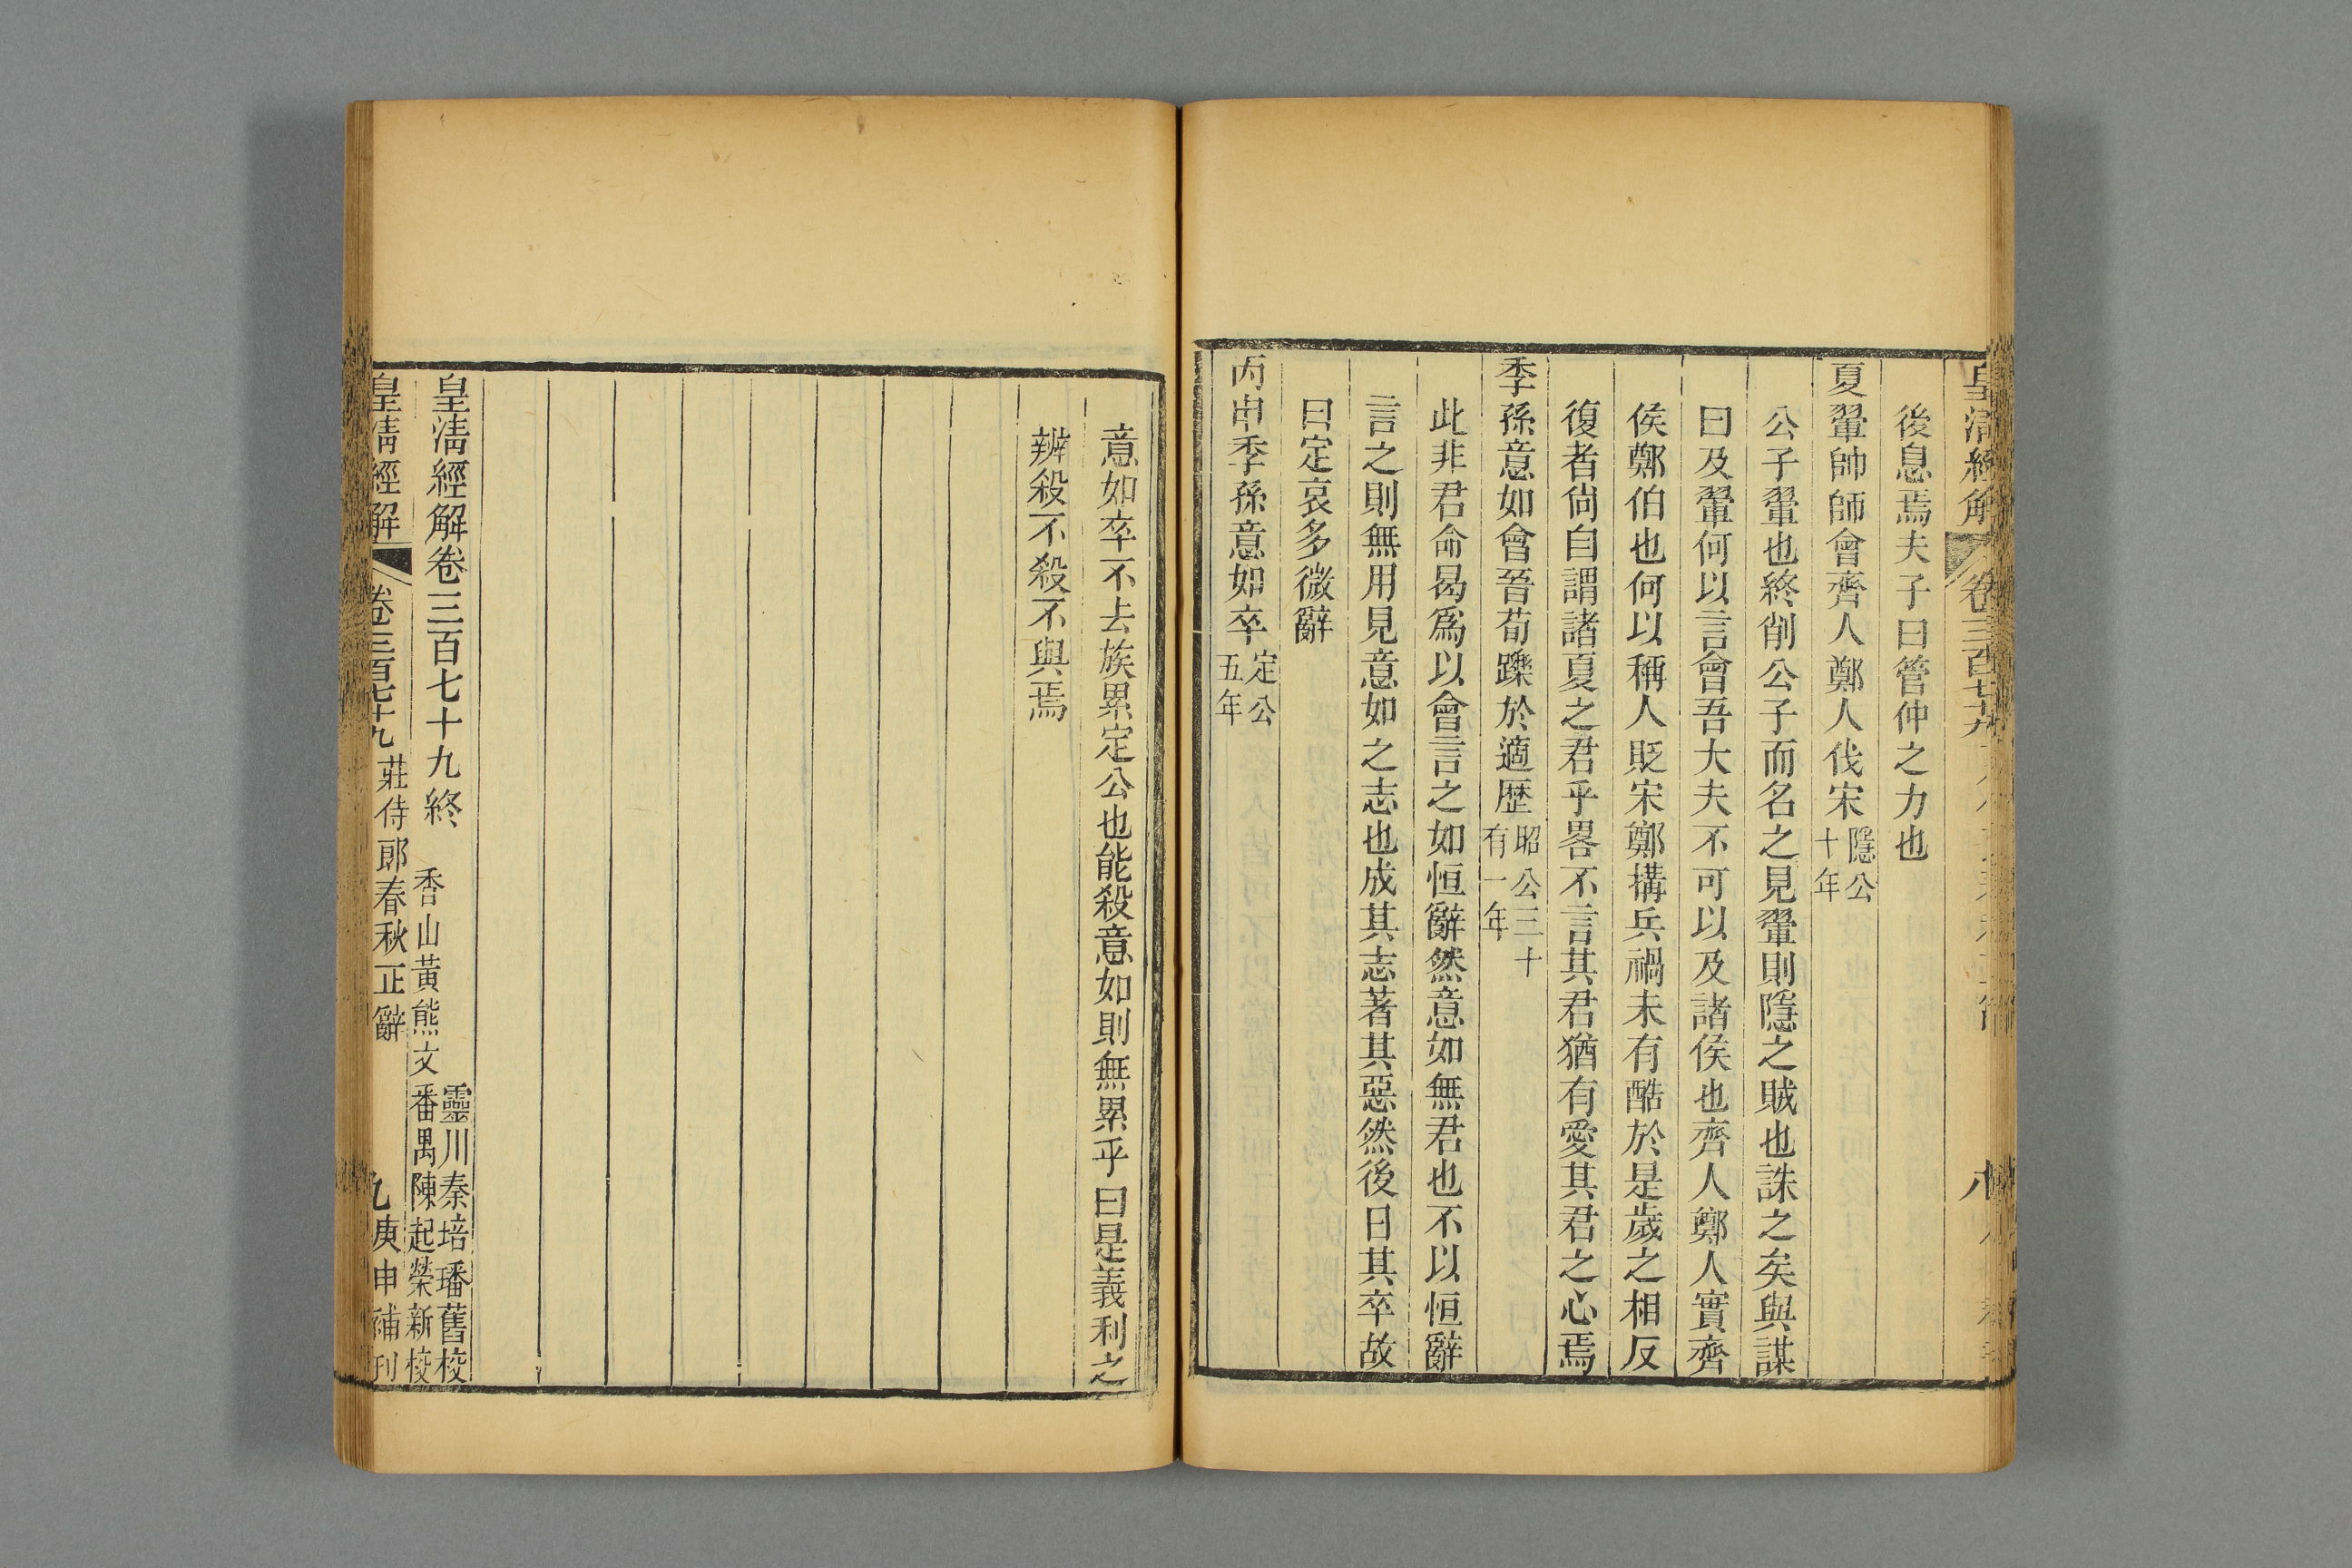 皇清經解 卷三百七十九 八
後息焉夫子曰管仲之力也
夏翬帥師會齊人鄭人伐宋隱公十年
公子翬也終削公子而名之見翬則隱之賊也誅之矣與謀
曰及翬何以言會吾大夫不可以及諸侯也齊人鄭人實齊
侯鄭伯也何以稱人貶宋鄭搆兵禍未有酷於是歲之相反
復者尙自謂諸夏之君乎畧不言其君猶有愛其君之心焉
季孫意如會晉荀躒於適歷昭公三十有一年
此非君命曷爲以會言之如恒辭然意如無君也不以恒辭
言之則無用見意如之志也成其志著其惡然後日其卒故
曰定哀多微辭
丙申季孫意如卒定公五年
意如卒不去族累定公也能殺意如則無累乎曰是義利之
辨殺不殺不與焉
皇清經解卷三百七十九終
靈川秦培璠舊校
香山黃熊文
番禺陳起榮新校
皇清經解 卷三百七十九 莊侍郎春秋正辭 九 庚申補刊